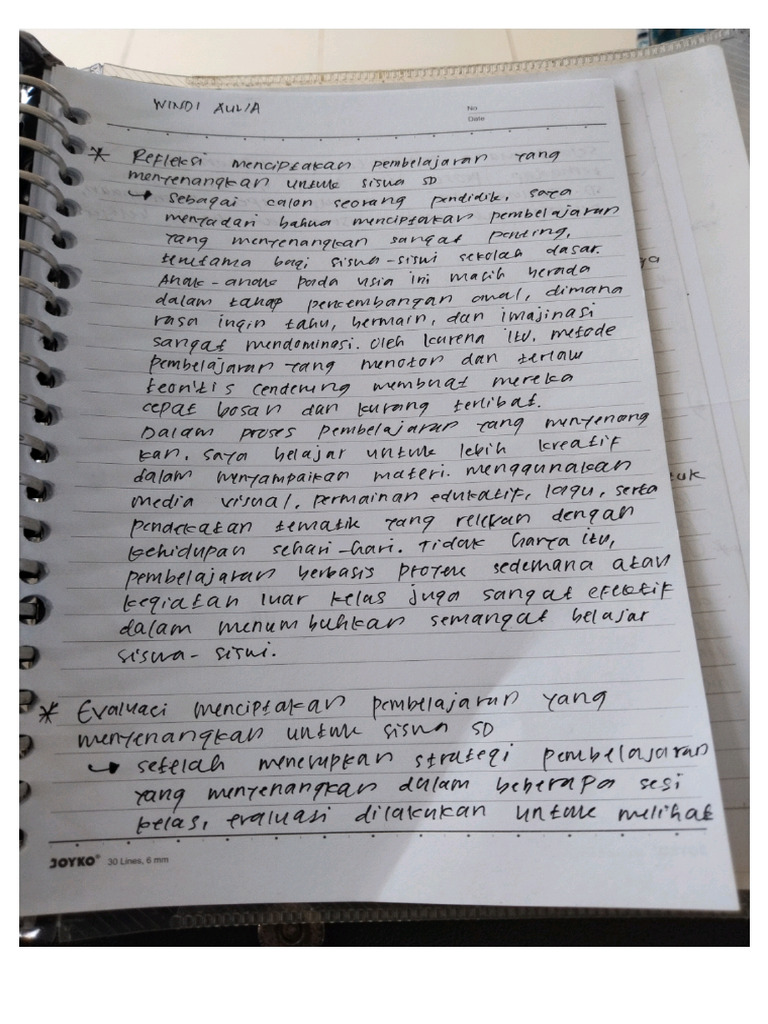 WINDI AULIA
No
Date
* Refleksi menciptakan pembelajaran yang
menyenangkan untuk siswa SD
↳ sebagai calon seorang pendidik, saya
menyadari bahwa menciptakan pembelajaran
yang menyenangkan sangat penting,
terutama bagi siswa-siswi sekolah dasar.
Anak-anak pada usia ini masih berada
dalam tahap percembangan awal, dimana
rasa ingin tahu, bermain, dan imajinasi
sangat mendominasi. Oleh karena itu, metode
pembelajaran yang monoton dan terlalu
teoritis cenderung membuat mereka
cepat bosan dan kurang terlibat.
Dalam proses pembelajaran yang menyenang
kan, saya belajar untuk lebih kreatif
dalam menyampaikan materi. menggunakan
media visual, permainan edukatif, lagu, serta
pendekatan tematik yang relevan dengan
kehidupan sehari-hari. Tidak hanya itu,
pembelajaran berbasis proyek sederhana atau
kegiatan luar kelas juga sangat efektif
dalam menumbuhkan semangat belajar
siswa-siswi.
* Evaluasi menciptakan pembelajaran yang
menyenangkan untuk siswa SD
↳ setelah menerapkan strategi pembelajaran
yang menyenangkan dalam beberapa sesi
kelas, evaluasi dilakukan untuk melihat
JOYKO® 30 Lines, 6 mm